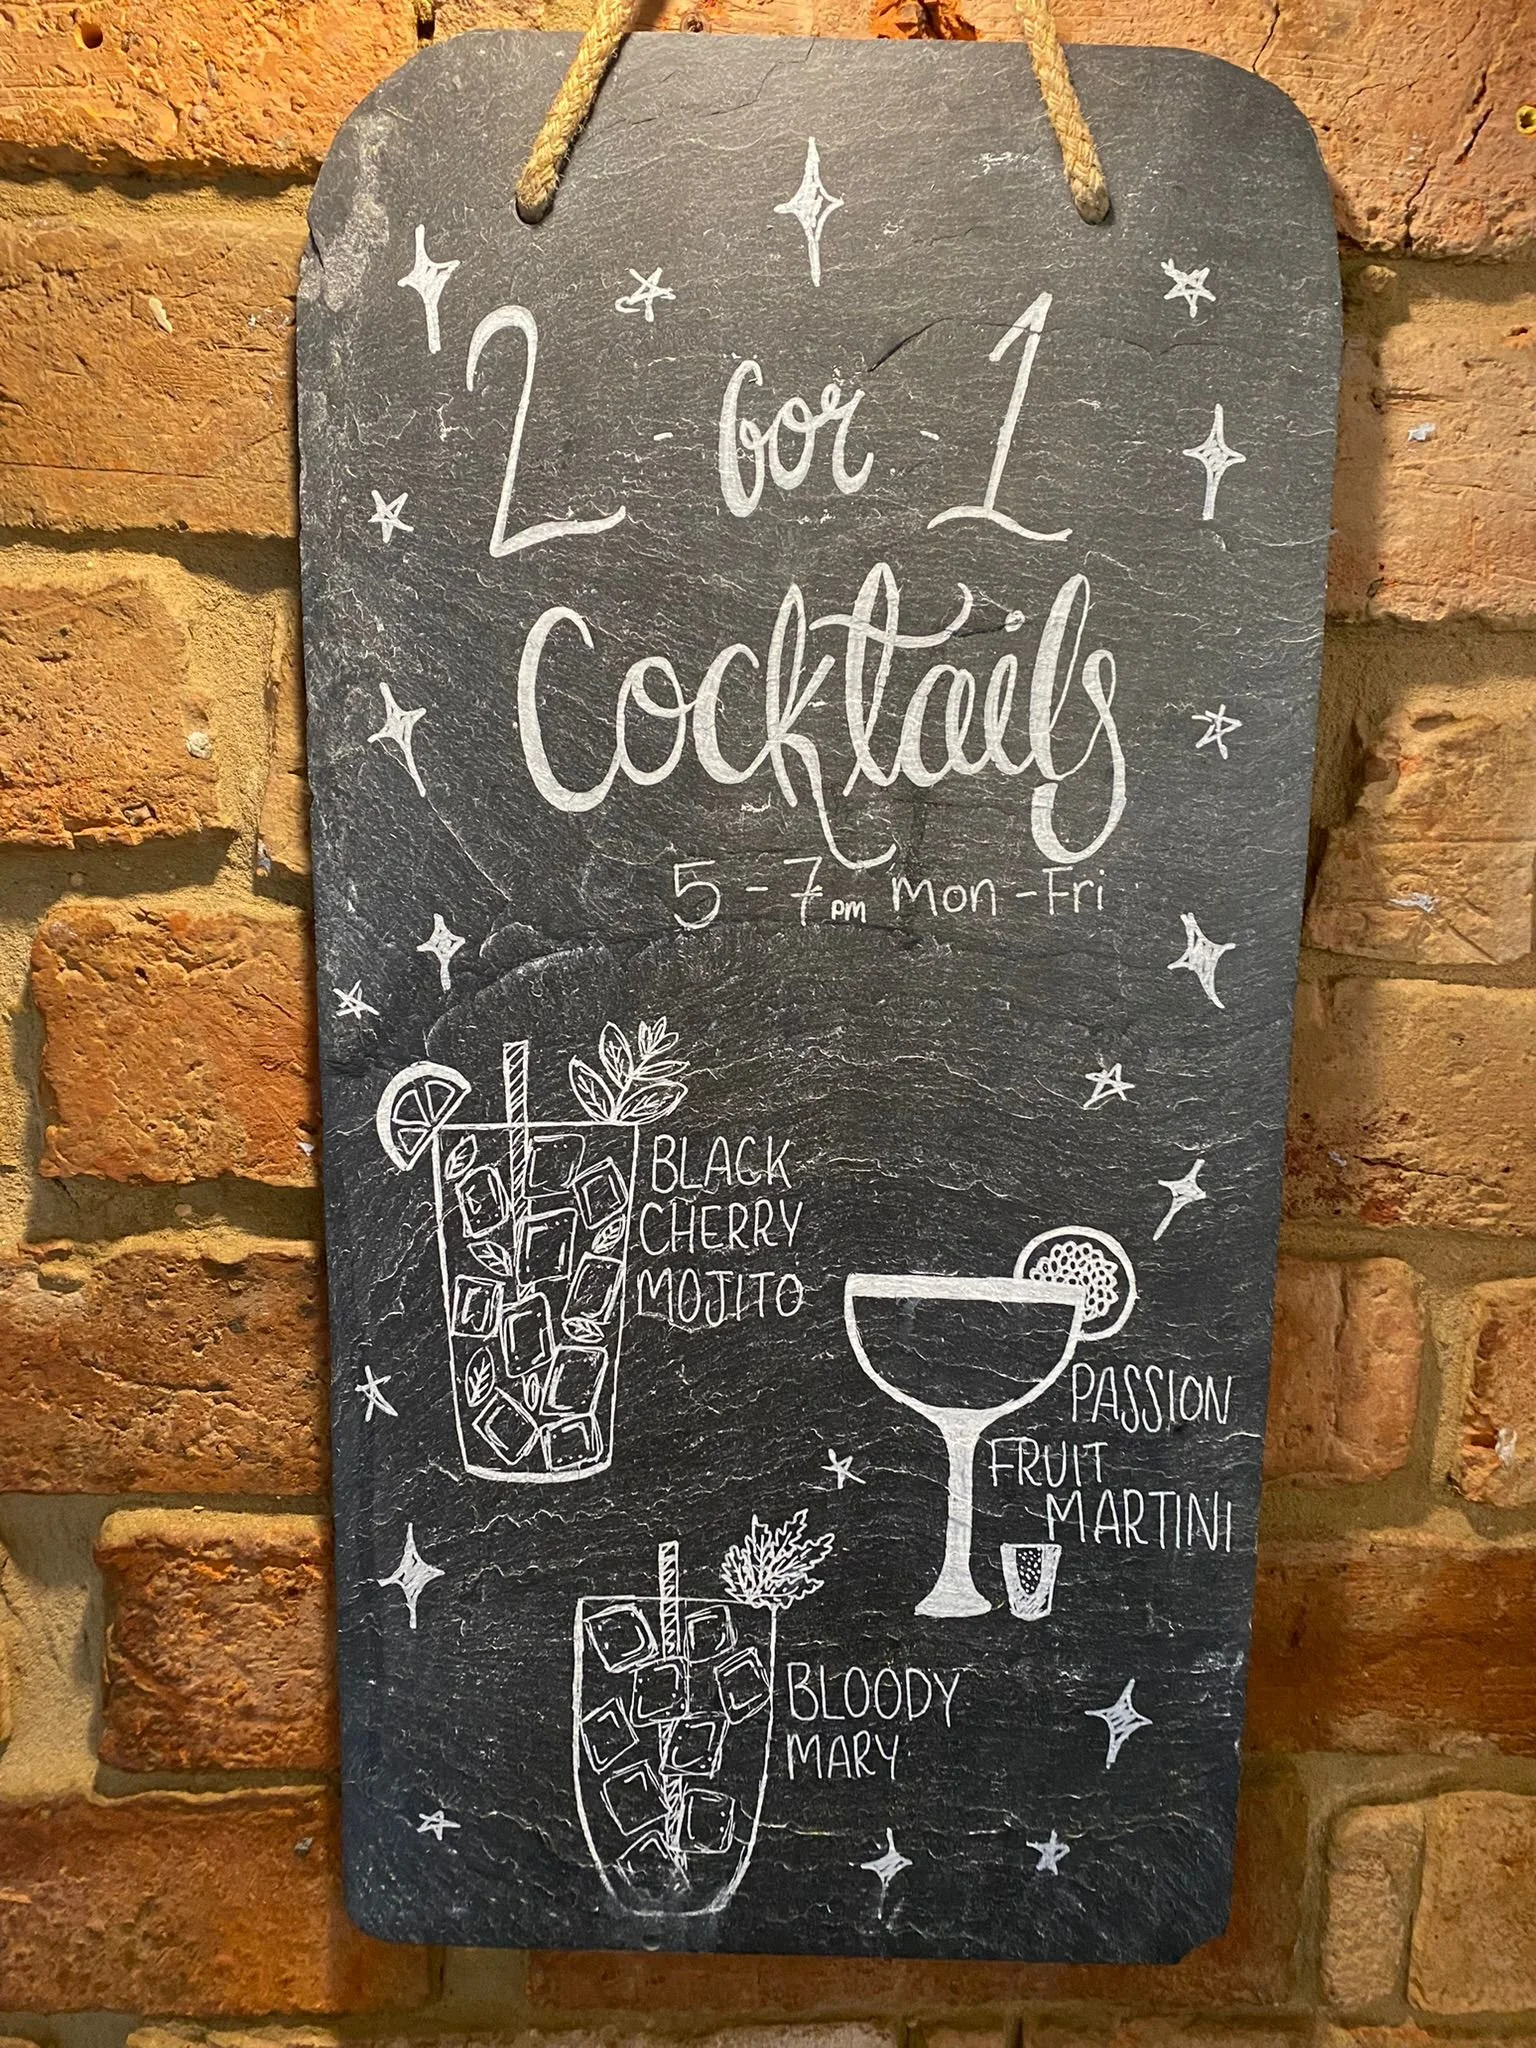 2 - for - 1
Cocktails
5 - 7pm Mon - Fri
BLACK
CHERRY
MOJITO
PASSION
FRUIT
MARTINI
BLOODY
MARY